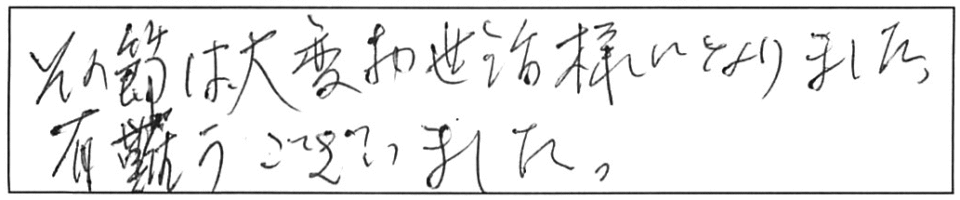 その節は大変お世話様になりました。
有難うございました。